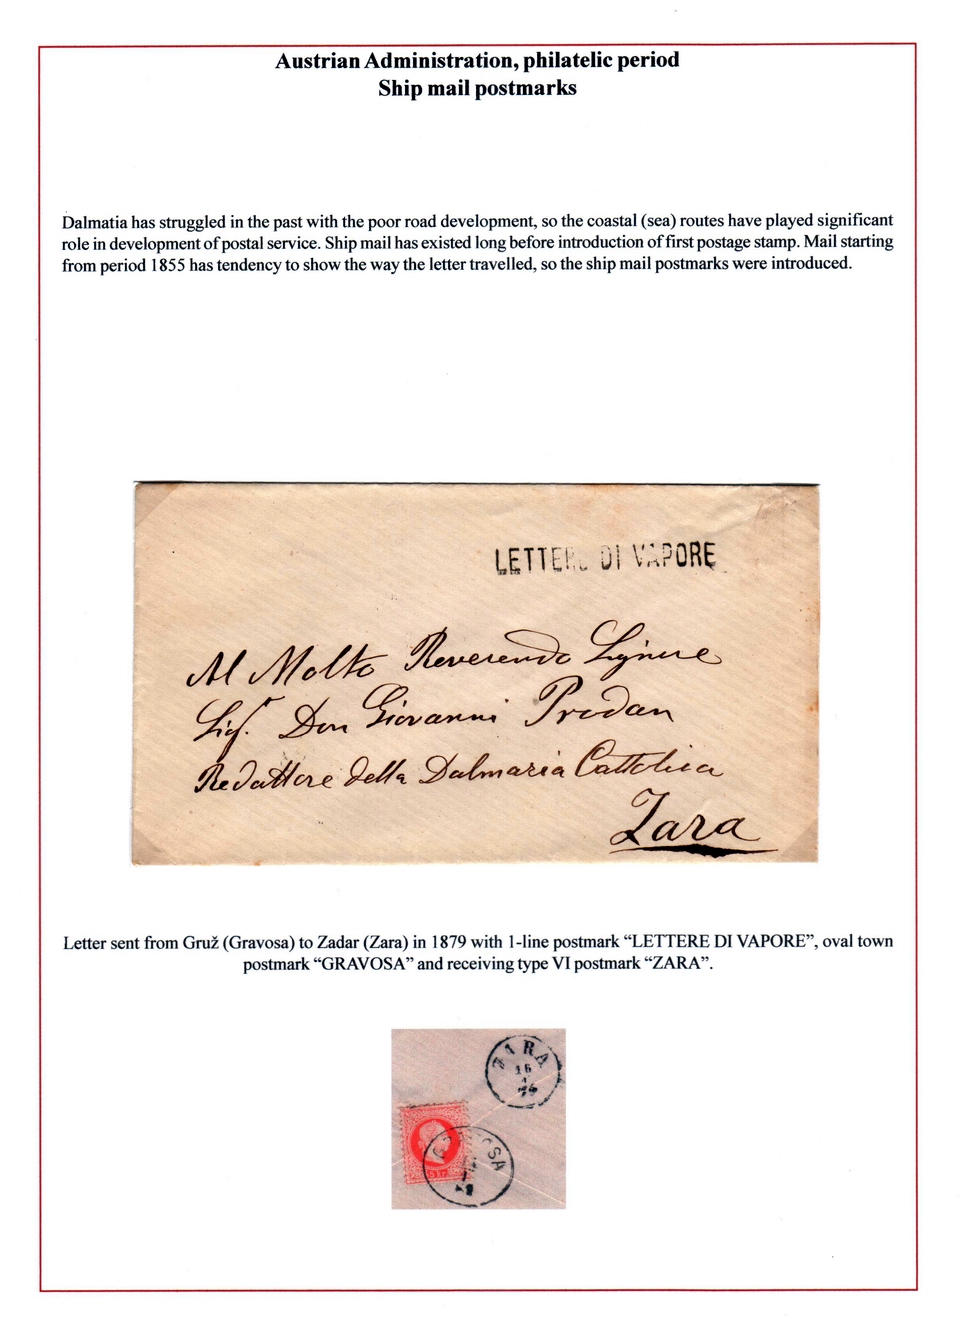 Austrian Administration, philatelic period
Ship mail postmarks
Dalmatia has struggled in the past with the poor road development, so the coastal (sea) routes have played significant
role in development of postal service. Ship mail has existed long before introduction of first postage stamp. Mail starting
from period 1855 has tendency to show the way the letter travelled, so the ship mail postmarks were introduced.
LETTERE DI VAPORE
Al Molto Reverendo Signore
Sigr. Don Giovanni Prodan
Redattore della Dalmazia Cattolica
Zara
Letter sent from Gruž (Gravosa) to Zadar (Zara) in 1879 with 1-line postmark “LETTERE DI VAPORE”, oval town
postmark “GRAVOSA” and receiving type VI postmark “ZARA”.
ZARA
16
79
GRAVOSA
5 kr